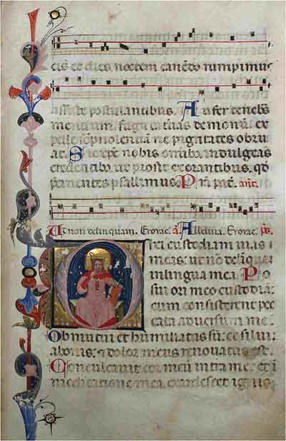 cis et dies noctem canēdo rumpimus
assiste postulantibus. Aufer tenebs
mentium, fuga cateruas demonū. ex
pelle sopnolentiā ne pigritātes obru
at. Sic xpe nobis omibus indulgeas
credentibꝰ, ut prosit exorantibꝰ, qđ
precinentes psallimus. P̄r. pat. añt.
Ut non delinquam. Evovae. a. Alleluia. Evovae. ps.
ixi custodiam uias m
eas. ut nō deliquā
in lingua mea. Po
sui ori meo custodiā.
cum consisteret pec
cator aduersum me.
Obmutui et humiliatus sū. et silui
a bonis. et dolor meus renouatus est.
Concaluit cor meū intra me. et ī
meditatione mea exardescet ignis.